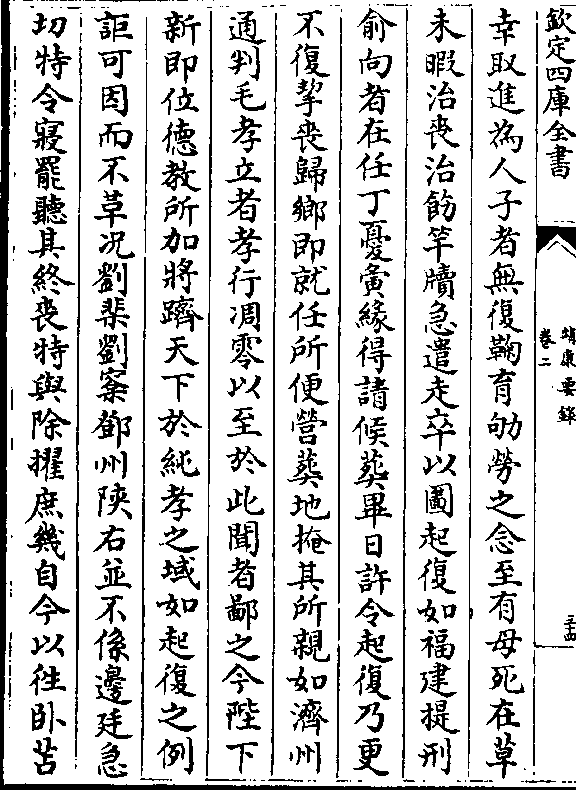 欽定四庫全書
靖康要錄
卷二
三十四
幸取進為人子者無復鞠育劬勞之念至有母死在草
未暇治喪治飭竿牘急遣走卒以圖起復如福建提刑
俞向者在任丁憂夤緣得請候葬畢日許令起復乃更
不復挈喪歸鄉即就任所便營葬地掩其所親如濟州
通判毛孝立者孝行凋零以至於此聞者鄙之今陛下
新即位德教所加將躋天下於純孝之域如起復之例
詎可因而不革况劉棐劉寀鄧州陜右並不係邊廷急
切特令寢罷聽其終喪特與除擢庶幾自今以徃卧苫